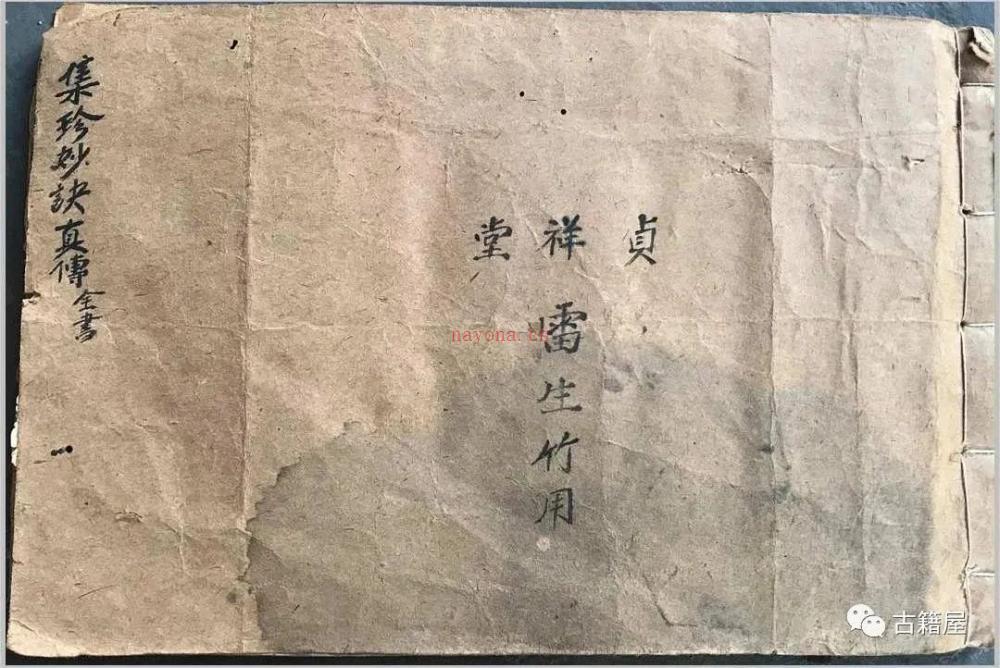 集珍妙訣真傳全書
貞祥堂
雷生竹用
nayona.cn
古籍屋